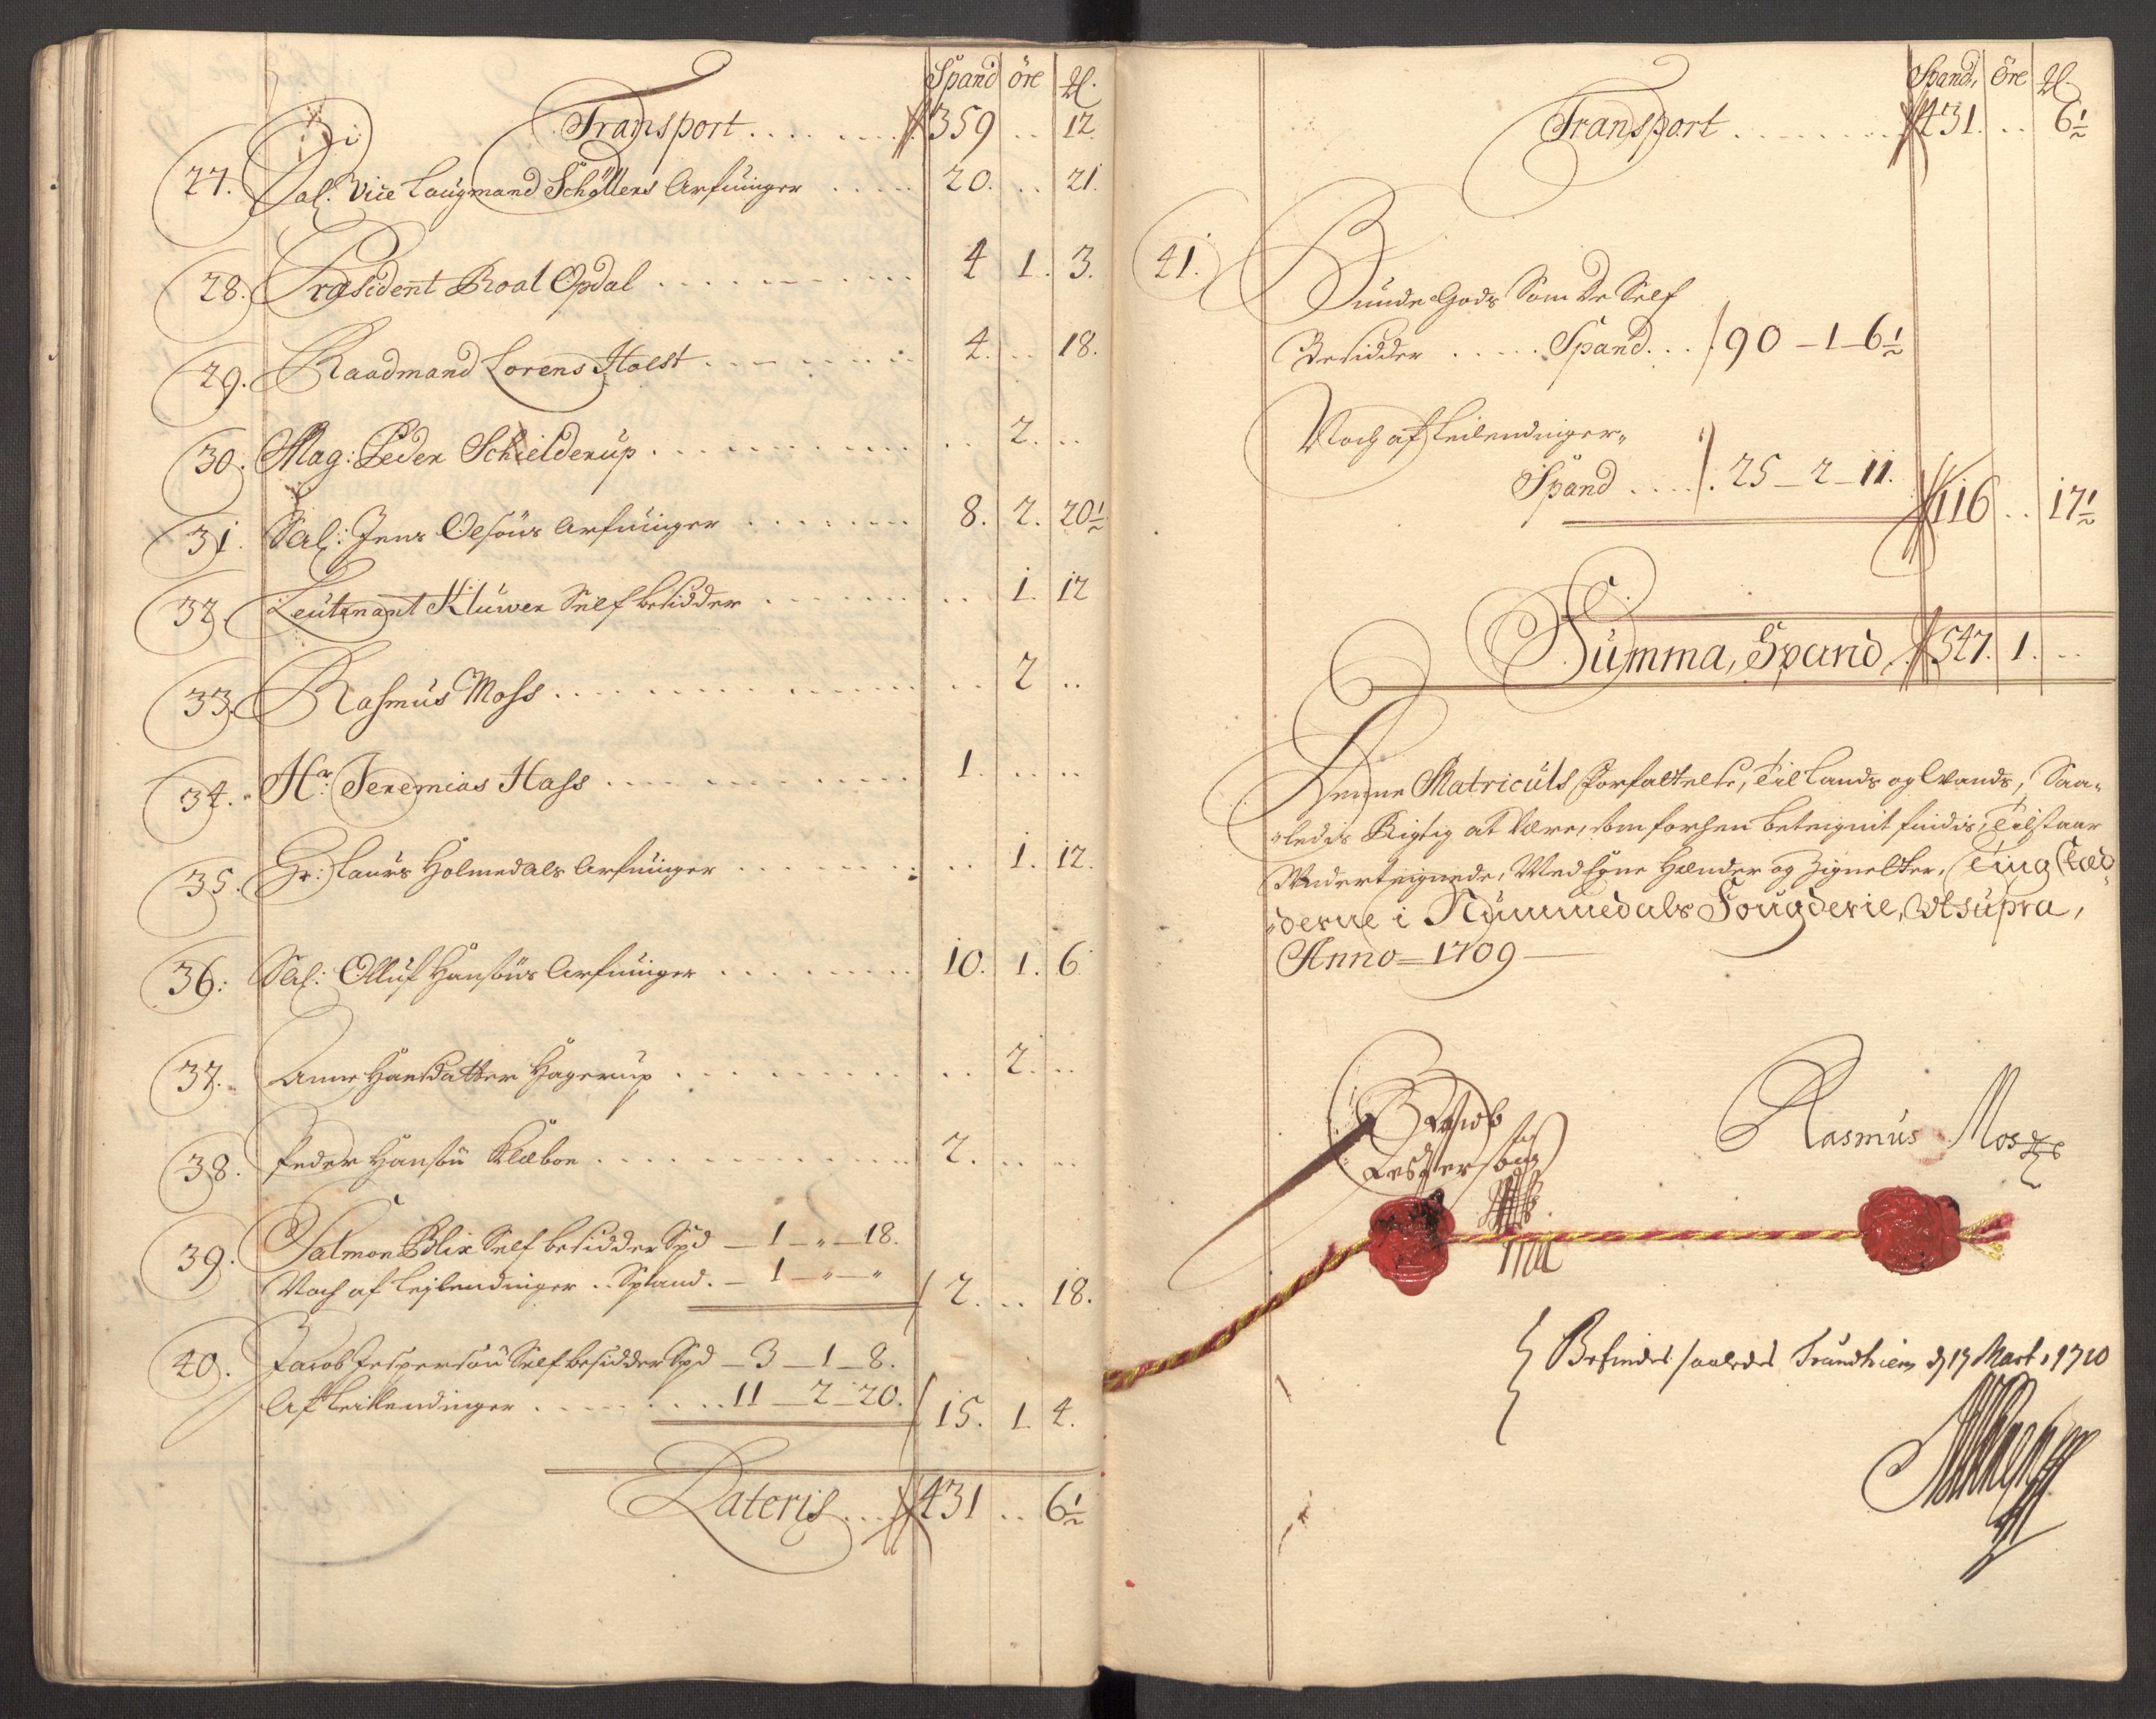 Spand öre
Transport . . . . . . . 359 . . 12.
27. Sal. Vice Laugmand Schøllers Arfuinger . . . . . 20. . . 21.
28. Præsident Roal Opdal . . . . . . . . . 4 1. 3.
29. Raadmand Lorens Holst . . . . . . . . 4. . . 18.
30. Mag: Peder Schielderup . . . . . . . . . . . 2. . .
31. Sal: Jens Olsøns Arfuinger . . . . . . . 8. 2. 20½
32. Leutenant Kluwer Self besidder . . . . . . . . . 1. 12
33. Rasmus Moss . . . . . . . . . . . . . . . . 2 . .
34. Hr: Jeremias Hass . . . . . . . . . . . 1. . . . .
35. Hr: Laurs Holmedals Arfuinger . . . . . . . . . 1. 12.
36: Sal: Olluf Hansøns Arfuinger . . . . . . . . 10. 1. 6
37. Anne Hansdatter Hagerup . . . . . . . . . . . 2. . .
38. Peder Hansøn Klæboe . . . . . . . . . . . . 2. . . . .
39. Salmon Blix Self besidder Spd – 1 – " – 18.
Noch af Lejlendinger . . Spand. – 1 – " – " 2. . . 18.
40. Jacob Jespersøn Self besidder Spd – 3 – 1 – 8.
Af Leillendinger . . . . . . . . . 11 – 2 – 20. 15. 1 4.
Lateris . . . 431 . . 6½
Spand, Öre
Transport . . . . . . . 431. . . 6½
41. Bunde Gods Som De Self
Besidder . . . . . Spand. . . 90 – 1 – 6½
Noch af Leilendinger,,
Spand . . . . . 25 – 2 – 11. 116 . . 17½
Summa, Spand . . 547. 1. . .
Denne Matriculs Forfattelse, Til Lands og Vands, Saa-
ledis Rigtig at Være, som forhen beteignit findis, Tilstaar
Underteignede, Med Egne Hænder og Zignetter, Ting stæd-
derne i Nummedals Fougderie, Ut supra,
Anno = 1709 –
Jacob
Jespersøn
Rasmus Moss
Befindes saaledes Trundhiem d 17 Mart. 1710